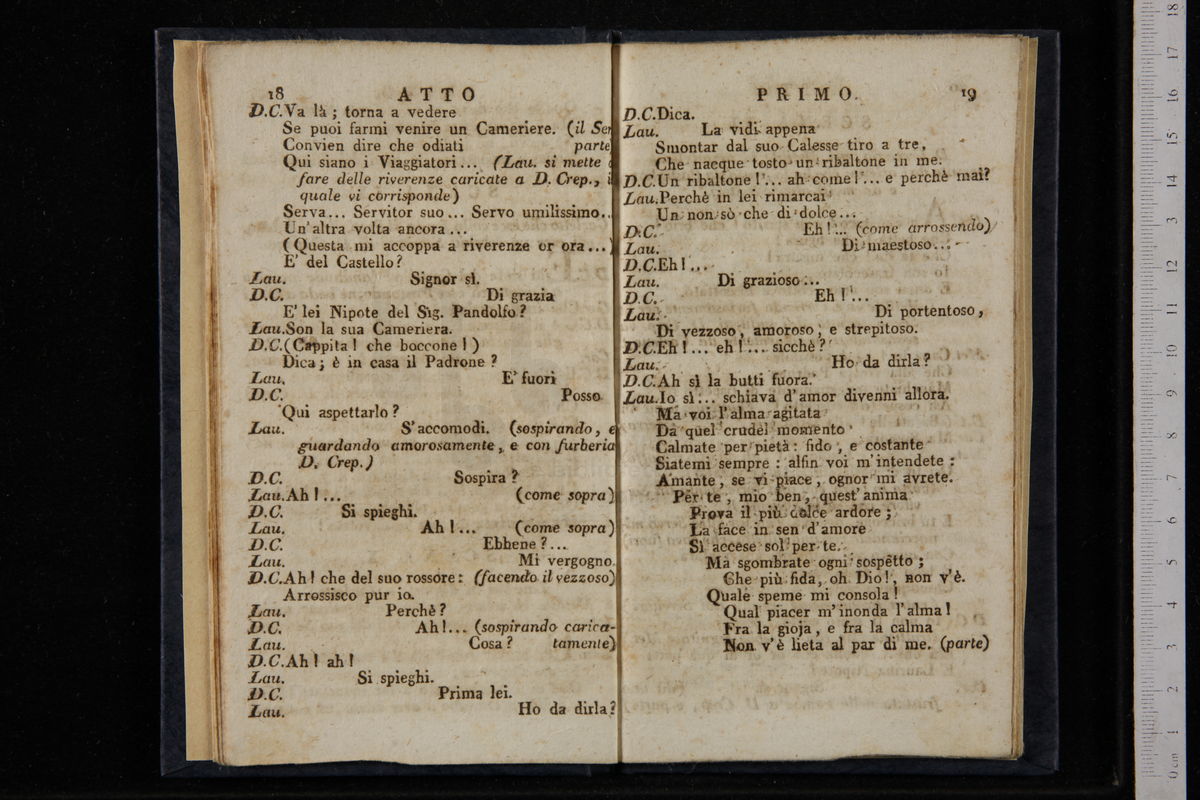 18 ATTO
D.C. Va là ; torna a vedere
Se puoi farmi venire un Cameriere. (il Ser
Convien dire che odiati parte
Qui siano i Viaggiatori... (Lau. si mette
fare delle riverenze caricate a D. Crep., i
quale vi corrisponde)
Serva... Servitor suo... Servo umilissimo..
Un'altra volta ancora...
(Questa mi accoppa a riverenze or ora...)
E' del Castello?
Lau. Signor sì.
D.C. Di grazia
E' lei Nipote del Sig. Pandolfo?
Lau. Son la sua Cameriera.
D.C. (Cappita! che boccone!)
Dica; è in casa il Padrone?
Lau. E' fuori
D.C. Posso
Qui aspettarlo?
Lau. S'accomodi. (sospirando, e
guardando amorosamente, e con furberia
D. Crep.)
D.C. Sospira?
Lau. Ah!... (come sopra)
D.C. Si spieghi.
Lau. Ah!... (come sopra)
D.C. Ebbene?...
Lau. Mi vergogno.
D.C. Ah! che del suo rossore: (facendo il vezzoso)
Arrossisco pur io.
Lau. Perchè?
D.C. Ah!... (sospirando carica-
Lau. Cosa? tamente)
D.C. Ah! ah!
Lau. Si spieghi.
D.C. Prima lei.
Lau. Ho da dirla?
PRIMO. 19
D.C. Dica.
Lau. La vidi appena
Smontar dal suo Calesse tiro a tre,
Che nacque tosto un ribaltone in me.
D.C. Un ribaltone!... ah come!... e perchè mai?
Lau. Perchè in lei rimarcai
Un non sò che di dolce...
D.C. Eh!... (come arrossendo)
Lau. Di maestoso...
D.C. Eh!...
Lau. Di grazioso...
D.C. Eh!...
Lau. Di portentoso,
Di vezzoso, amoroso, e strepitoso.
D.C. Eh!... eh!... sicchè?
Lau. Ho da dirla?
D.C. Ah sì la butti fuora.
Lau. Io sì... schiava d'amor divenni allora.
Ma voi l'alma agitata
Da quel crudel momento
Calmate per pietà: fido, e costante
Siatemi sempre: alfin voi m'intendete:
Amante, se vi piace, ognor mi avrete.
Per te, mio ben, quest'anima
Prova il più dolce ardore;
La face in sen d'amore
Si accese sol per te.
Ma sgombrate ogni sospetto;
Che più fida, oh Dio!, non v'è.
Quale speme mi consola!
Qual piacer m'inonda l'alma!
Fra la gioja, e fra la calma
Non v'è lieta al par di me. (parte)
0 cm 1 2 3 4 5 6 7 8 9 10 11 12 13 14 15 16 17 18